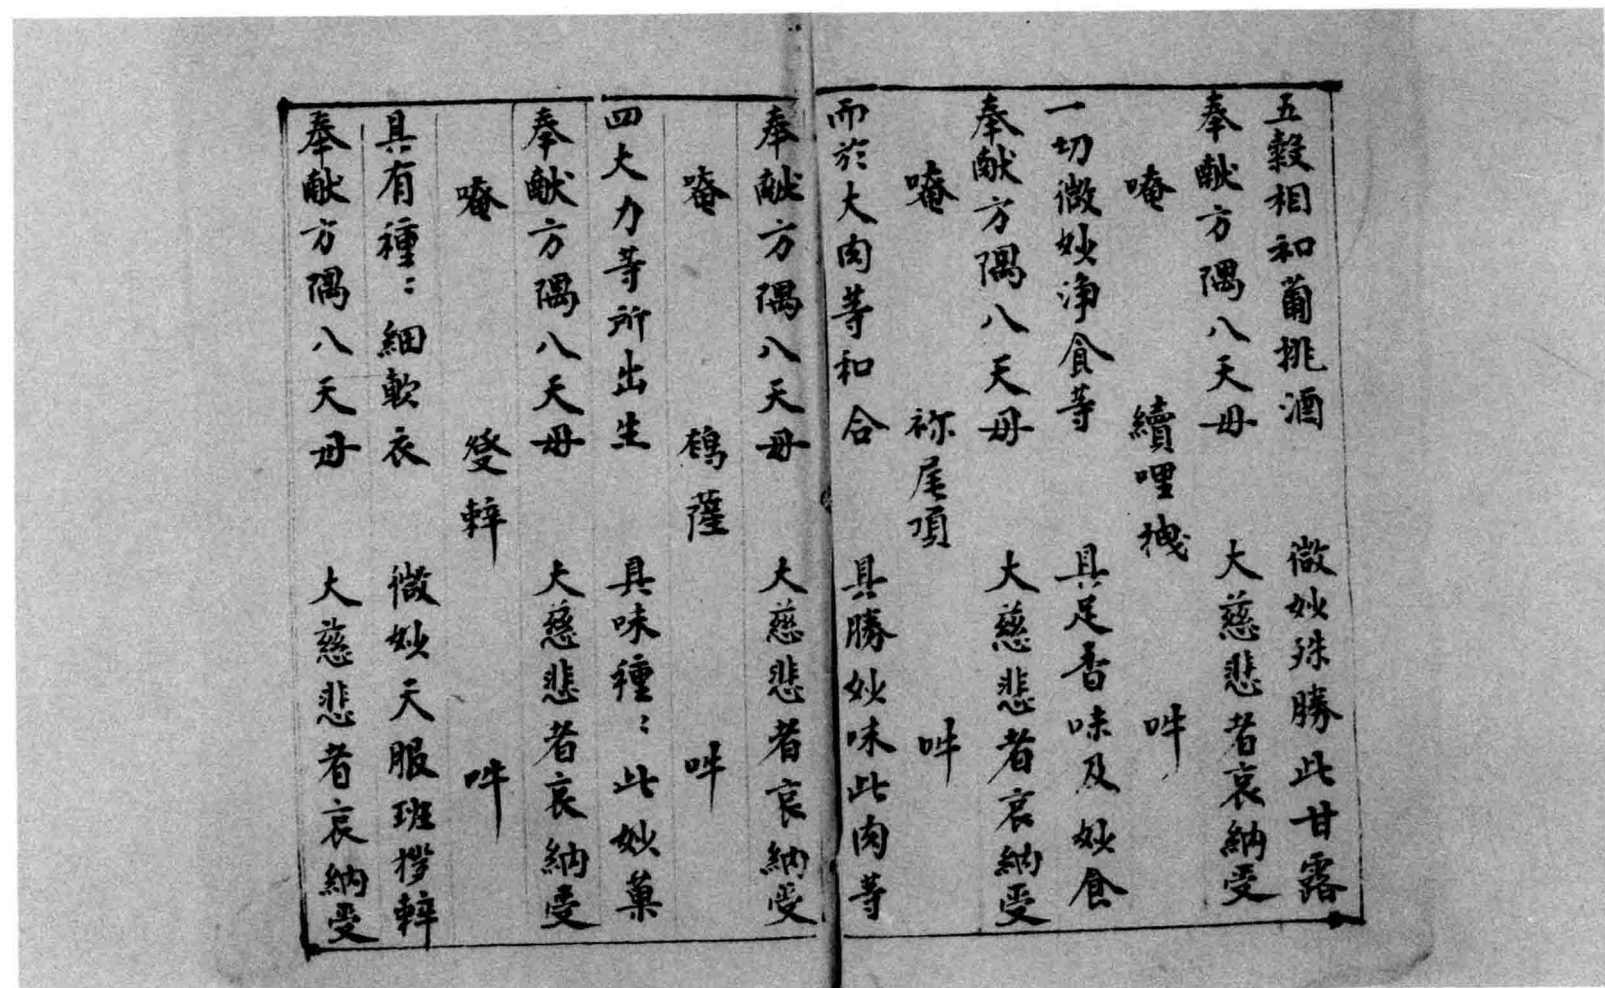 五穀相和葡挑酒 微妙殊勝此甘露
奉献方隅八天母 大慈悲者哀納受
唵 續哩拽 吽
一切微妙净食等 具足香味及妙食
奉献方隅八天母 大慈悲者哀納受
唵 祢尾頂 吽
而於大肉等和合 具勝妙味此肉等
奉献方隅八天母 大慈悲者哀納受
唵 鴣薩 吽
四大力等所出生 具味種〻此妙菓
奉献方隅八天母 大慈悲者哀納受
唵 發 吽
具有種〻細軟衣 微妙天服班
奉献方隅八天母 大慈悲者哀納受